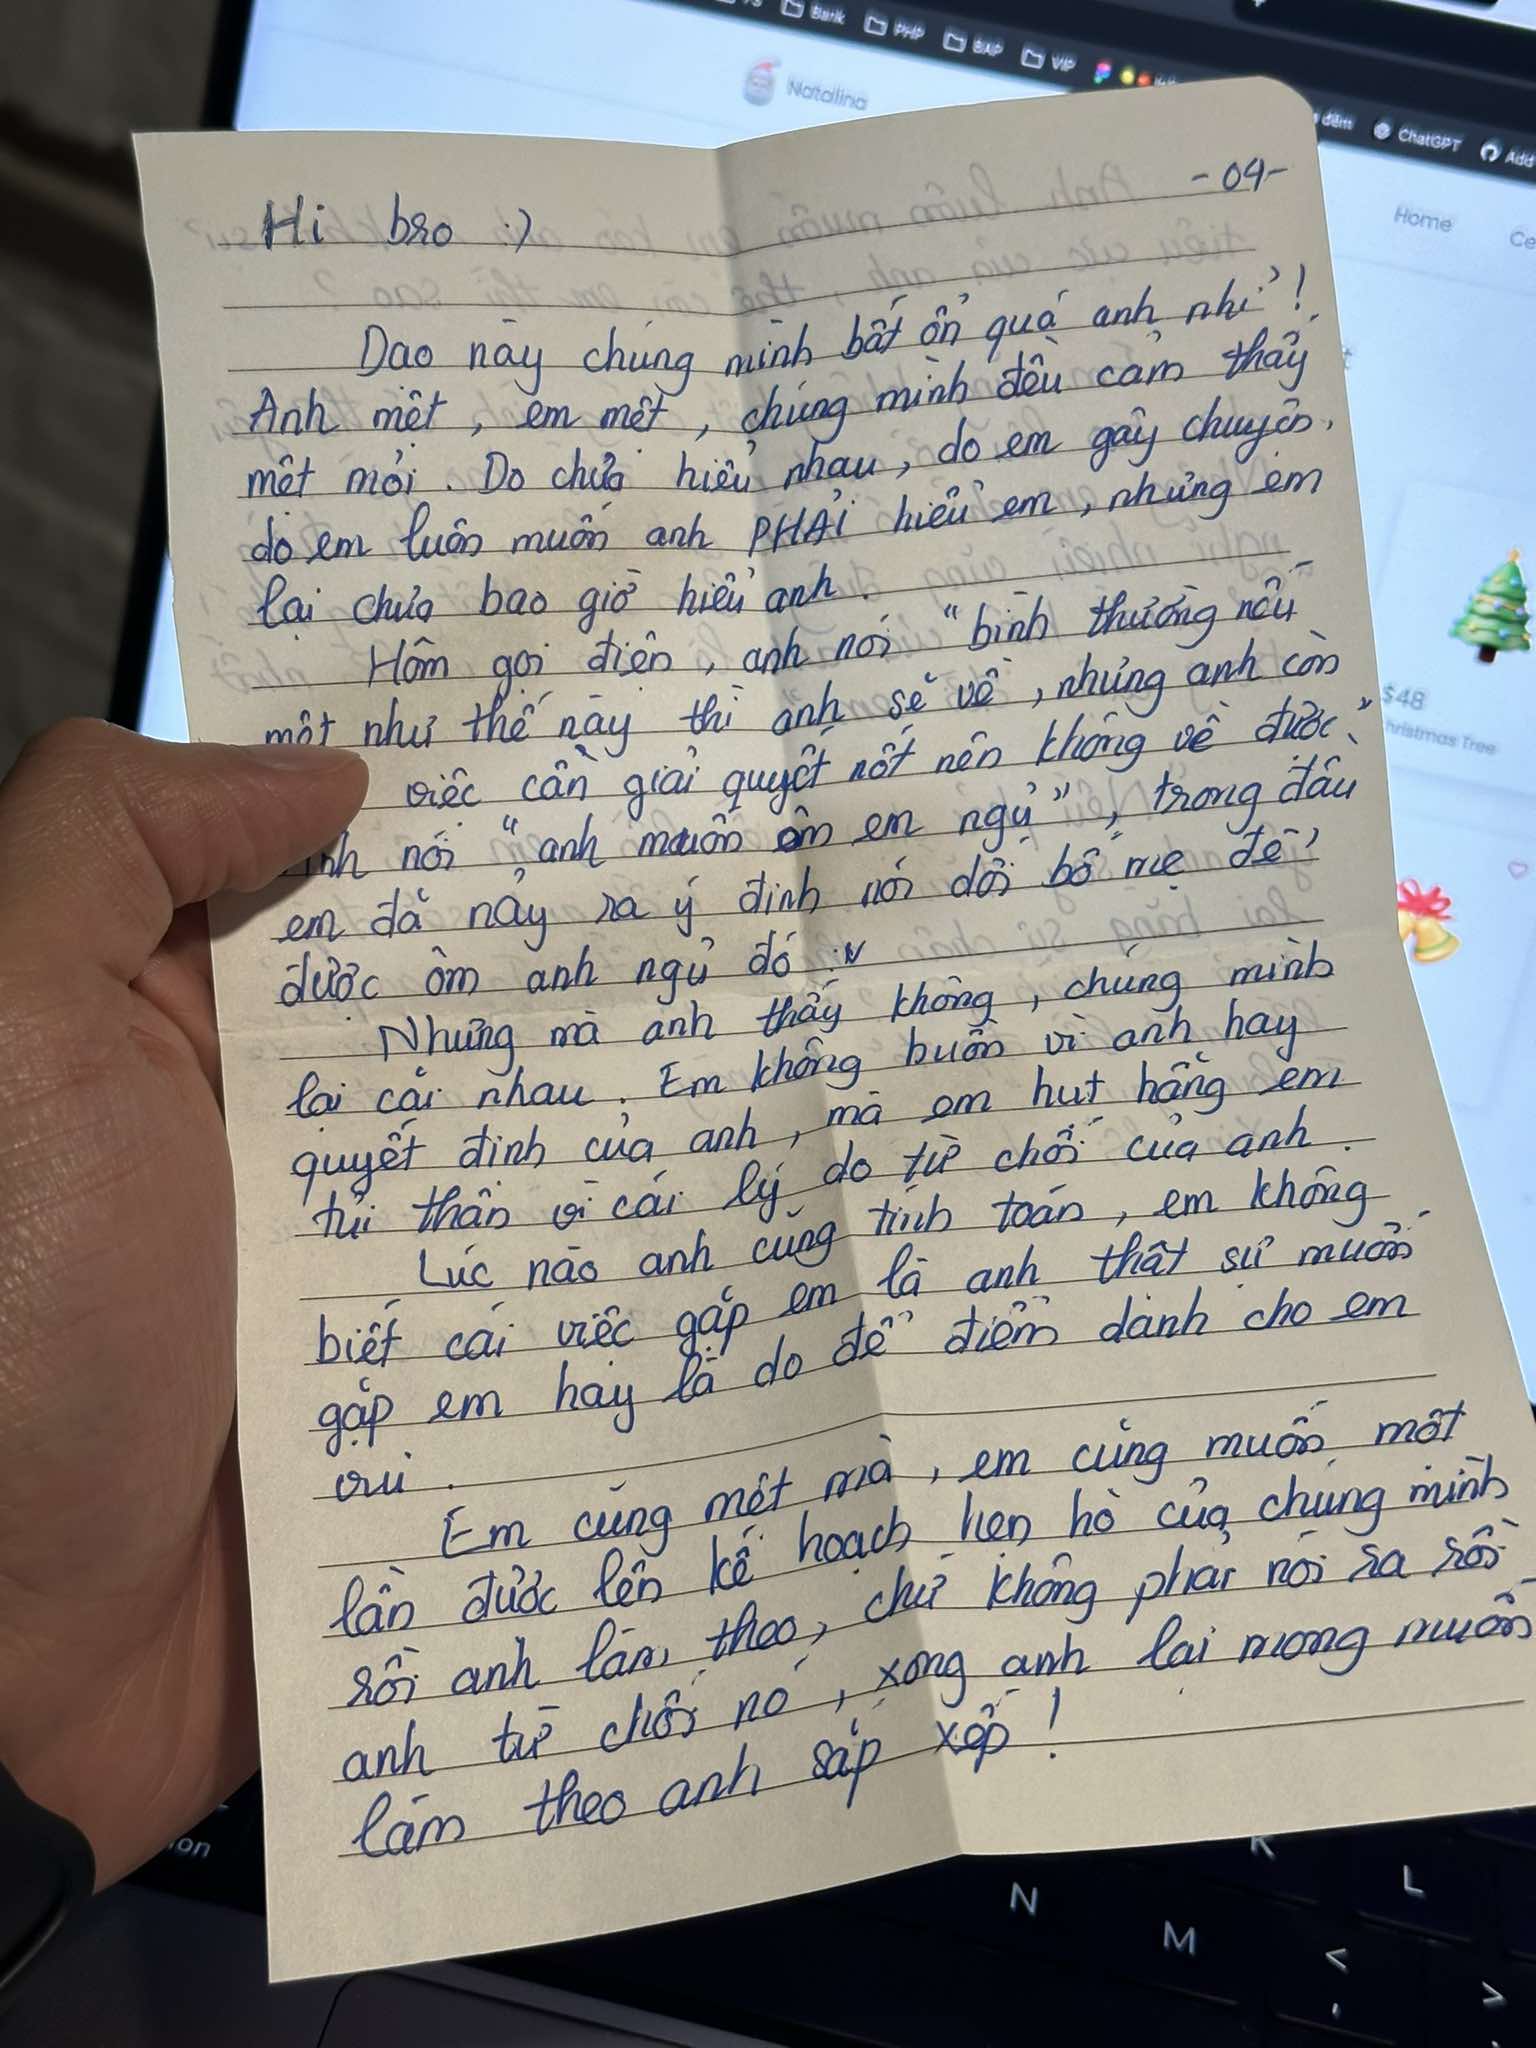 Bank
PHP
BAP
VIP
Natalina
đêm
ChatGPT
Add
Home
Ce
$48
hristmas Tree
-04-
Hi bro :)
Dạo này chúng mình bất ổn quá anh nhỉ!
Anh mệt, em mệt, chúng mình đều cảm thấy
mệt mỏi. Do chưa hiểu nhau, do em gây chuyện,
do em luôn muốn anh PHẢI hiểu em, nhưng em
lại chưa bao giờ hiểu anh.
Hôm gọi điện, anh nói "bình thường nếu
mệt như thế này thì anh sẽ về, nhưng anh còn
việc cần giải quyết nốt nên không về được"
anh nói "anh muốn ôm em ngủ", trong đầu
em đã nảy ra ý định nói dối bố mẹ để
được ôm anh ngủ đó :v
Nhưng mà anh thấy không, chúng mình
lại cãi nhau. Em không buồn vì anh hay
quyết định của anh, mà em hụt hẫng em
tủi thân vì cái lý do từ chối của anh.
Lúc nào anh cũng tính toán, em không
biết cái việc gặp em là anh thật sự muốn
gặp em hay là do để điểm dành cho em
vui.
Em cũng mệt mà, em cũng muốn một
lần được lên kế hoạch hẹn hò của chúng mình
rồi anh làm theo, chứ không phải nói ra rồi
anh từ chối nó, xong anh lại mong muốn
làm theo anh sắp xếp!
on
K
L
N
M
<
>
,